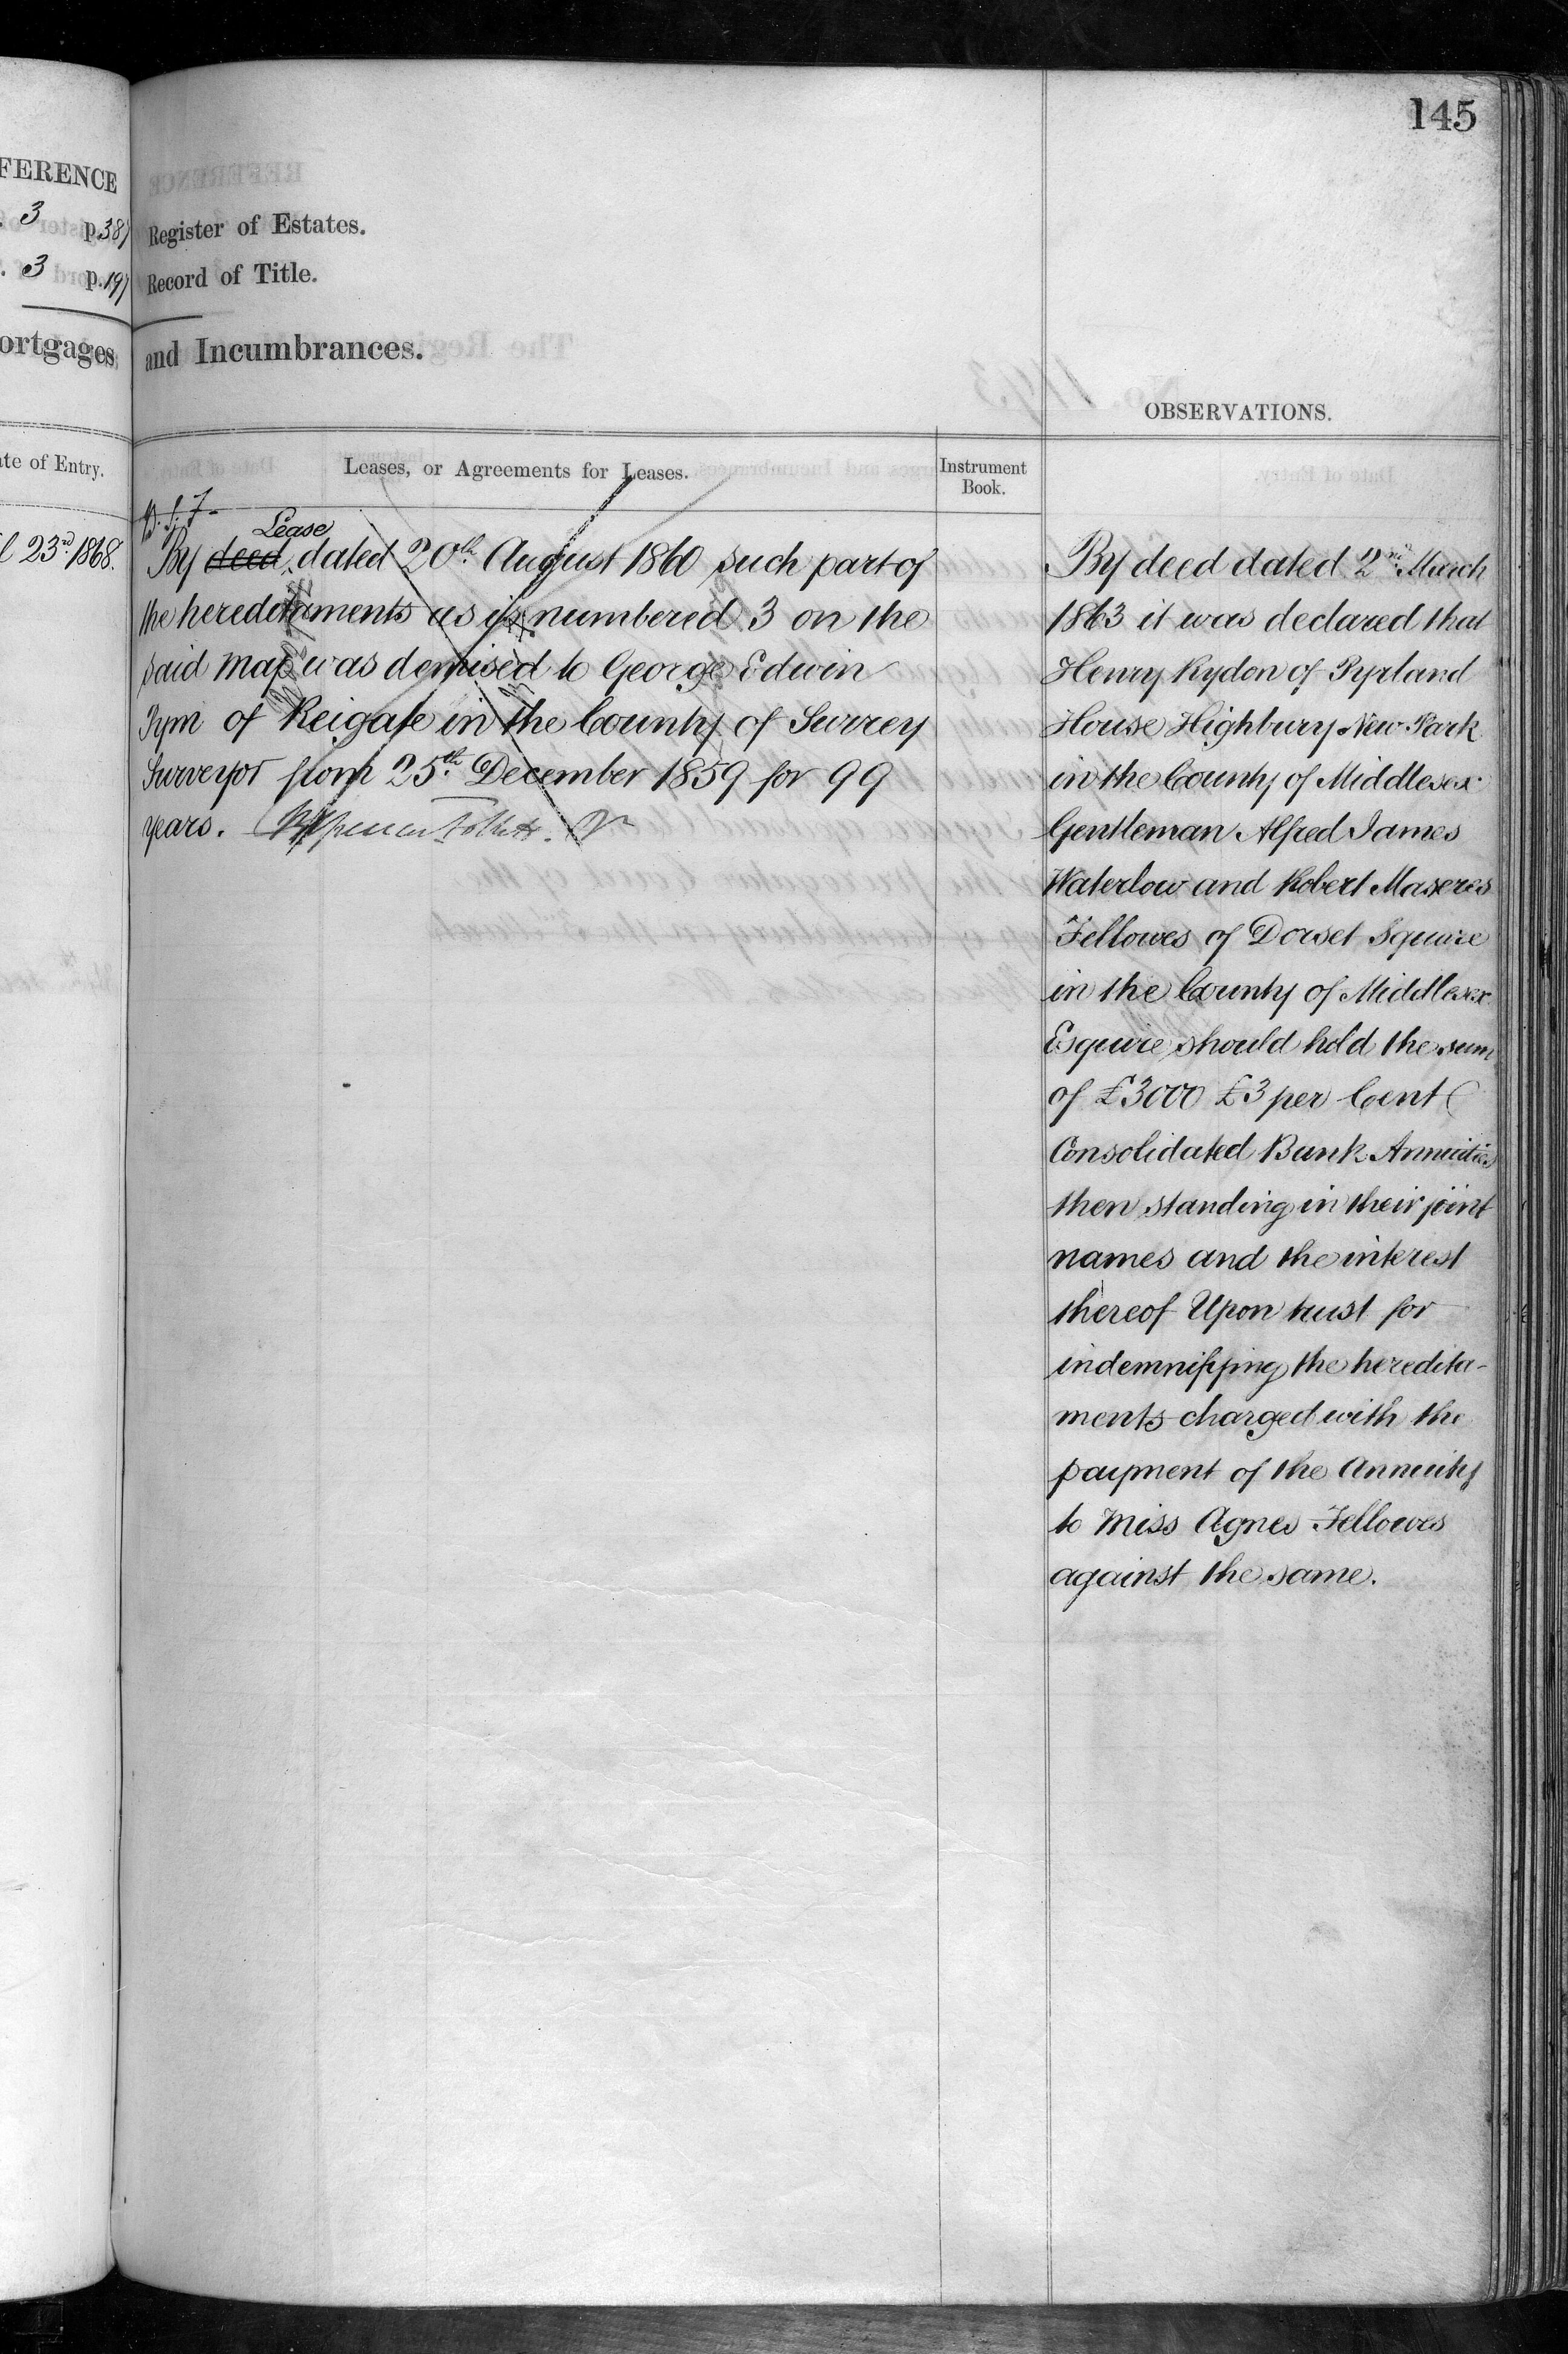 145
FERENCE
3 p. 387
3 p. 197
ortgages
ate of Entry.
l 23rd 1868.
Register of Estates.
Record of Title.
and Incumbrances.
OBSERVATIONS.
Leases, or Agreements for Leases.
Instrument
Book.
Lease
By deed dated 20th August 1860 such part of
the hereditaments as is numbered 3 on the
said map was demised to George Edwin
Pym of Reigate in the County of Surrey
Surveyor from 25th December 1859 for 99
years.
By deed dated 2nd March
1863 it was declared that
Henry Rydon of Pyrland
House Highbury New Park
in the County of Middlesex
Gentleman Alfred James
Waterlow and Robert Maseres
Fellowes of Dorset Square
in the County of Middlesex
Esquire should hold the sum
of £3000 £3 per Cent
Consolidated Bank Annuities
then standing in their joint
names and the interest
thereof Upon trust for
indemnifying the heredita-
ments charged with the
payment of the Annuity
to Miss Agnes Fellowes
against the same.